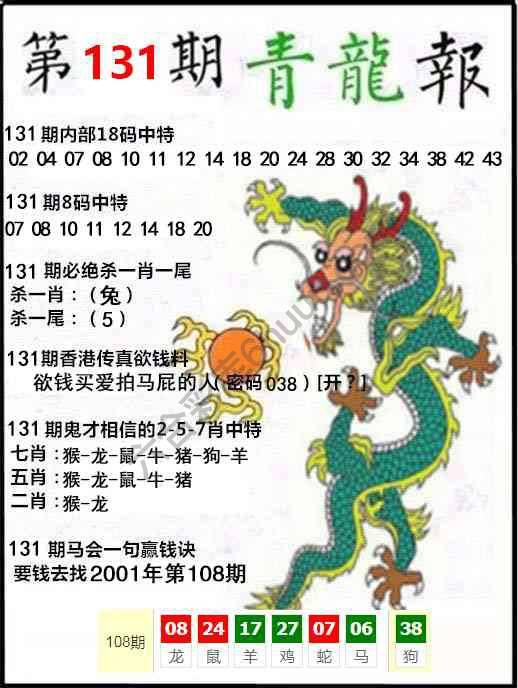 第131期青龍報
131期内部18码中特
02 04 07 08 10 11 12 14 18 20 24 28 30 32 34 38 42 43
131期8码中特
07 08 10 11 12 14 18 20
131期必绝杀一肖一尾
杀一肖：（兔）
杀一尾：（5）
131期香港传真欲钱料
欲钱买爱拍马屁的人（密码038）[开?]
131期鬼才相信的2-5-7肖中特
七肖：猴-龙-鼠-牛-猪-狗-羊
五肖：猴-龙-鼠-牛-猪
二肖：猴-龙
131期马会一句赢钱诀
要钱去找2001年第108期
108期 08 24 17 27 07 06 38
龙 鼠 羊 鸡 蛇 马 狗